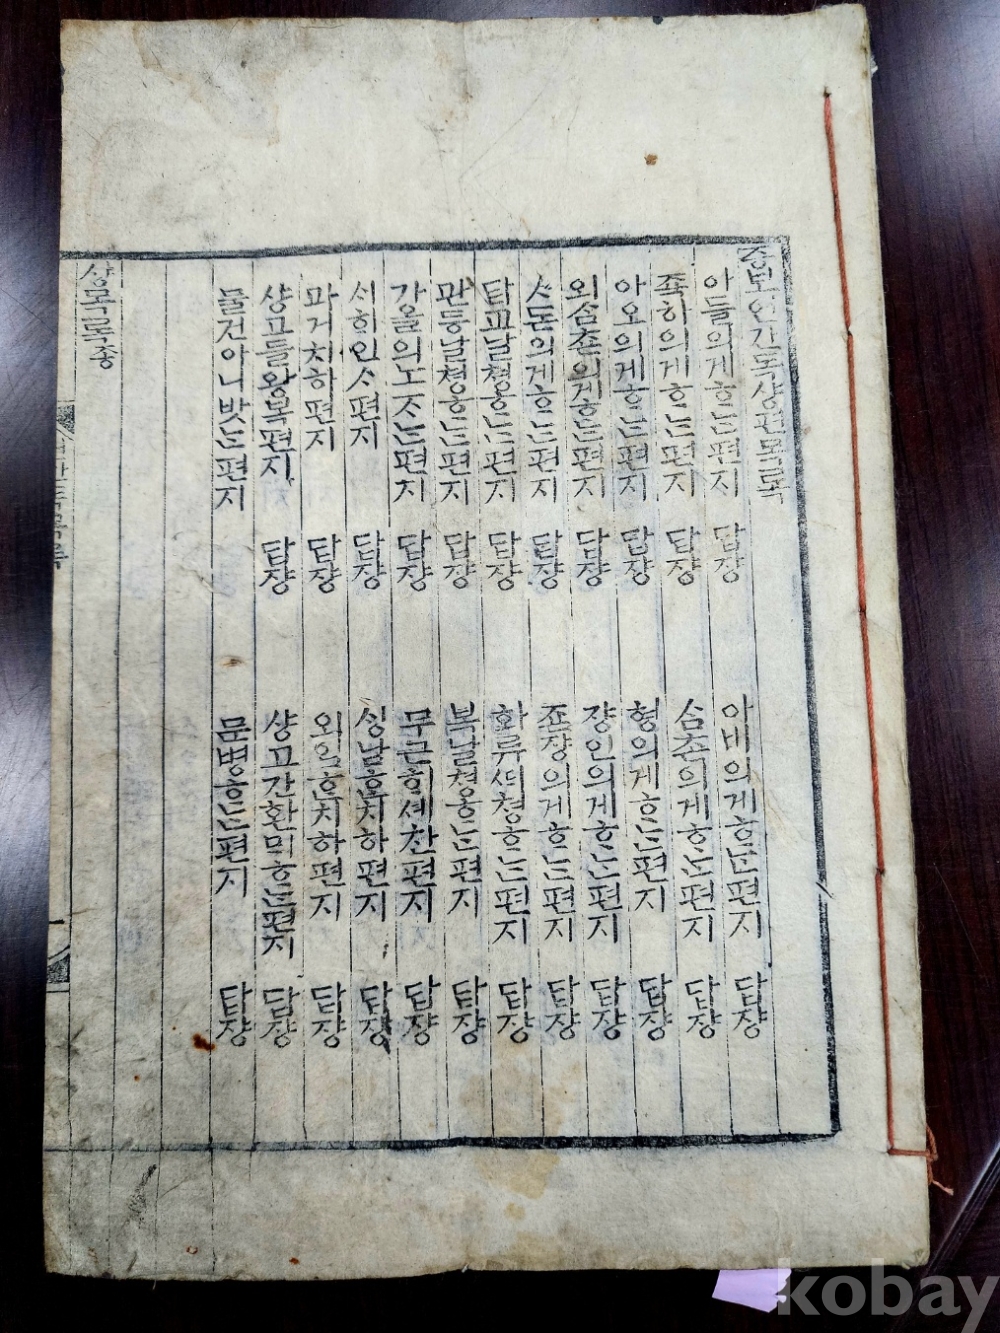 증보언간독상편목녹
아들의게ᄒᆞᄂᆞᆫ편지 답쟝 아비의게ᄒᆞᄂᆞᆫ편지 답쟝
족하의게ᄒᆞᄂᆞᆫ편지 답쟝 삼촌의게ᄒᆞᄂᆞᆫ편지 답쟝
아오의게ᄒᆞᄂᆞᆫ편지 답쟝 형의게ᄒᆞᄂᆞᆫ편지 답쟝
외삼촌의게ᄒᆞᄂᆞᆫ편지 답쟝 쟝인의게ᄒᆞᄂᆞᆫ편지 답쟝
ᄉᆞ돈의게ᄒᆞᄂᆞᆫ편지 답쟝 죤쟝의게ᄒᆞᄂᆞᆫ편지 답쟝
답교날쳥ᄒᆞᄂᆞᆫ편지 답쟝 화류ᄯᅴ쳥ᄒᆞᄂᆞᆫ편지 답쟝
관등날쳥ᄒᆞᄂᆞᆫ편지 답쟝 복날쳥ᄒᆞᄂᆞᆫ편지 답쟝
가을의노ᄌᆞᄂᆞᆫ편지 답쟝 무근ᄒᆡ셰찬편지 답쟝
ᄉᆡᄒᆡ인ᄉᆞ편지 답쟝 ᄉᆡᆼ남ᄒᆞᆫ치하편지 답쟝
과거치하편지 답쟝 외임ᄒᆞᆫ치하편지 답쟝
샹고들왕복편지 답쟝 샹고간환ᄆᆡᄒᆞᄂᆞᆫ편지 답쟝
물건아니밧ᄂᆞᆫ편지 문병ᄒᆞᄂᆞᆫ편지 답쟝
상목녹죵
kobay